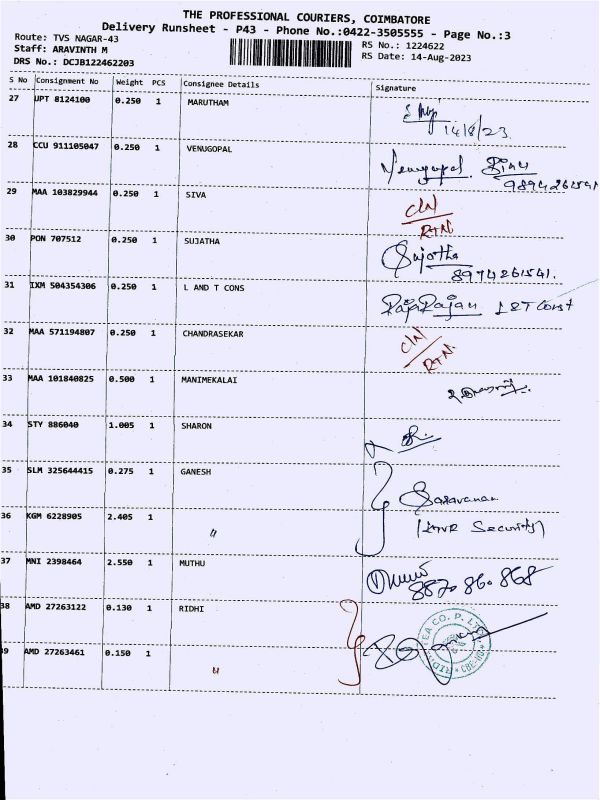 THE PROFESSIONAL COURIERS, COIMBATORE
Delivery Runsheet - P43 - Phone No.:0422-3505555 - Page No.:3
Route: TVS NAGAR-43
RS No.: 1224622
Staff: ARAVINTH M
RS Date: 14-Aug-2023
DRS No.: DCJB122462203
S No Consignment No Weight PCS Consignee Details Signature
27 UPT 8124100 0.250 1 MARUTHAM
14/8/23
28 CCU 911105047 0.250 1 VENUGOPAL
Venugopal
9894261541
29 MAA 103829944 0.250 1 SIVA
C/N
RTN
30 PON 707512 0.250 1 SUJATHA
Sujatha
8974261541.
31 IXM 504354306 0.250 1 L AND T CONS
RajaRajan L&T Const
32 MAA 571194807 0.250 1 CHANDRASEKAR
C/N
RTN
33 MAA 101840825 0.500 1 MANIMEKALAI
34 STY 886040 1.005 1 SHARON
35 SLM 325644415 0.275 1 GANESH
Saravanan
36 KGM 6228905 2.405 1 "
Security)
37 MNI 2398464 2.550 1 MUTHU
8870 860 868
38 AMD 27263122 0.130 1 RIDHI
39 AMD 27263461 0.150 1 "
TEA CO. P. LTD